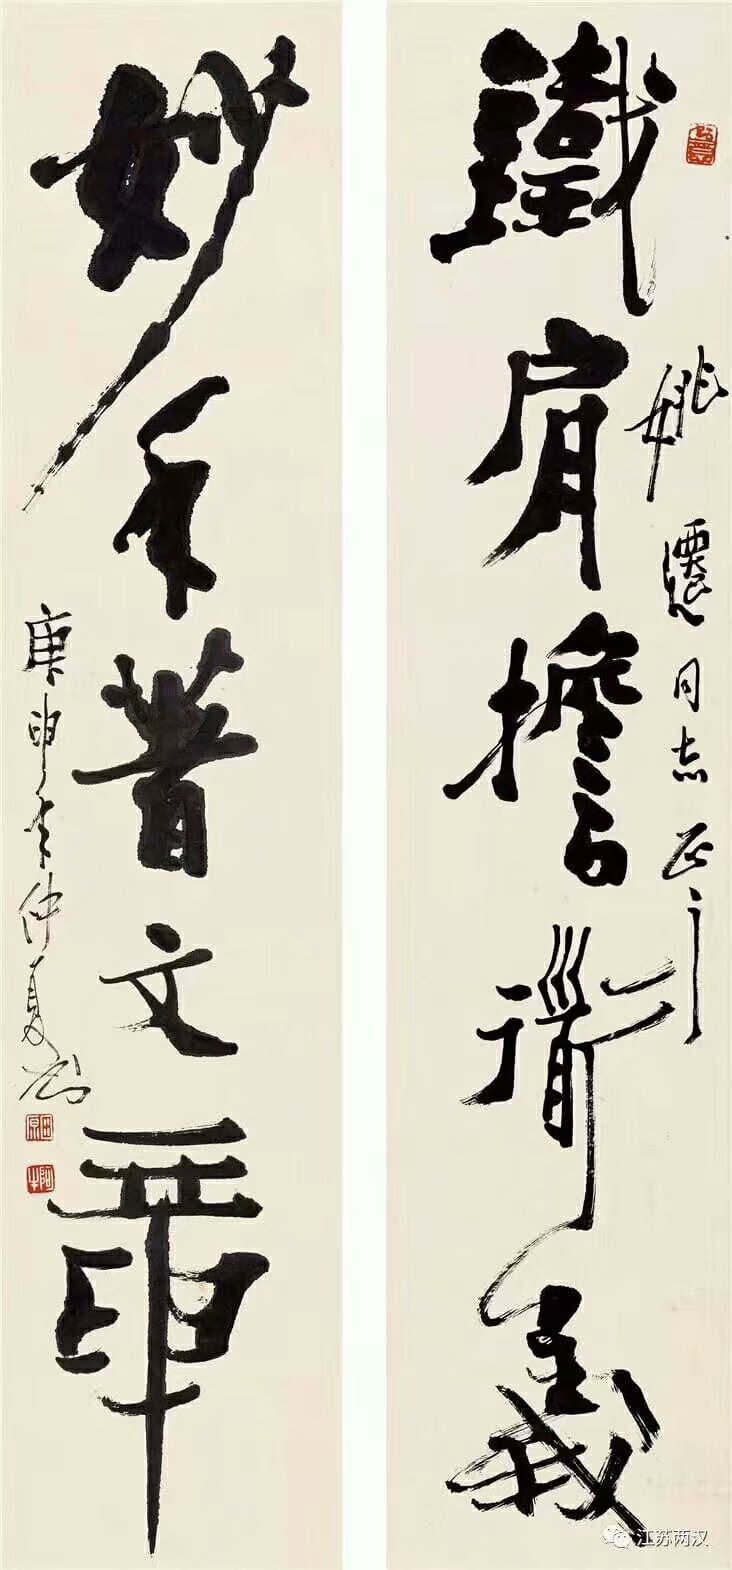 姚遷同志正之
鐵肩擔道義
妙手著文章
庚申年仲夏
田原
阿牛
江苏两汉